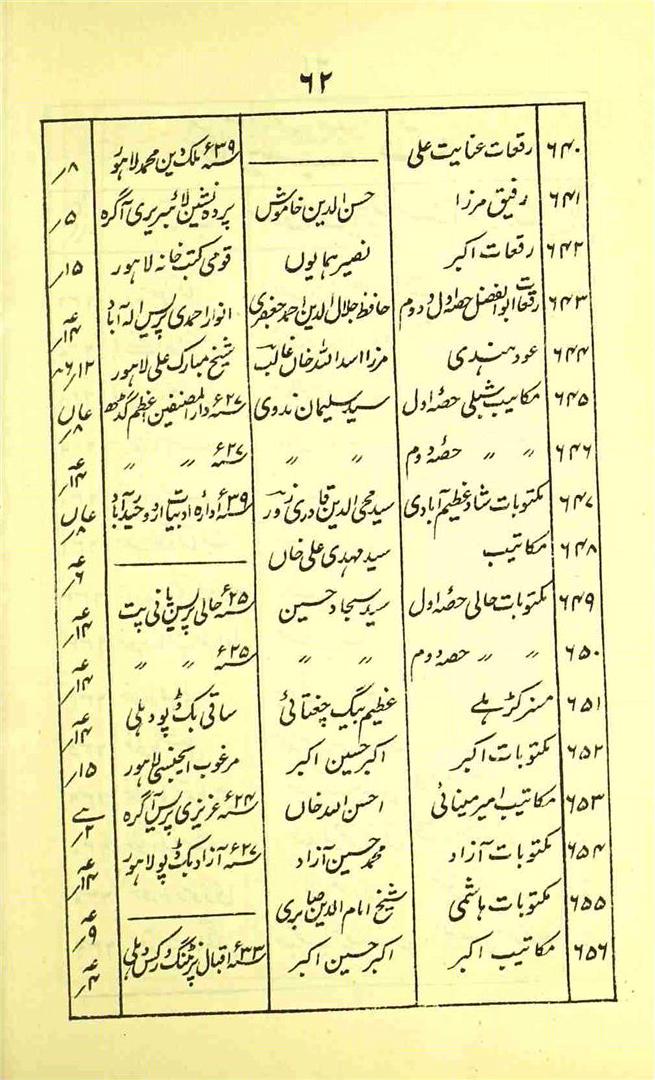 ۶۲
۶۴۰ رقعات عنایت علی ——— ۳۹ء ملک دین محمد لاہور ۸ر
۶۴۱ رفیق مرزا حسن الدین خاموش پردہ نشین لائبریری آگرہ ۵ر
۶۴۲ رقعات اکبر نصیر ہمایوں قومی کتب خانہ لاہور ۱۵ر
۶۴۳ رقعات ابوالفضل حصہ اول و دوم حافظ جلال الدین احمد جعفری انوار احمدی پریس الہ آباد ۱۴ر
۶۴۴ عود ہندی مرزا اسد اللہ خاں غالب شیخ مبارک علی لاہور ۱۲ر
۶۴۵ مکاتیب شبلی حصہ اول سید سلیمان ندوی ۲۷ء دار المصنفین اعظم گڈھ ۸ر
۶۴۶ 〃 〃 حصہ دوم 〃 〃 ۲۷ء 〃 〃 ۱۴ر
۶۴۷ مکتوبات شاد عظیم آبادی سید محی الدین قادری زور ۳۹ء ادارہ ادبیات اردو حیدرآباد ۸ر
۶۴۸ مکاتیب سید مہدی علی خاں ——— ۶ر
۶۴۹ مکتوبات حالی حصہ اول سید سجاد حسین ۲۵ء حالی پریس پانی پت ۱۴ر
۶۵۰ 〃 〃 حصہ دوم 〃 〃 ۲۵ء 〃 〃 ۱۴ر
۶۵۱ مسز کڑہلے عظیم بیگ چغتائی ساقی بک ڈپو دہلی ۱۴ر
۶۵۲ مکتوبات اکبر اکبر حسین اکبر مرغوب ایجنسی لاہور ۱۵ر
۶۵۳ مکاتیب امیر مینائی احسن اللہ خاں ۲۴ء عزیزی پریس آگرہ ۲ر
۶۵۴ مکتوبات آزاد محمد حسین آزاد ۲۷ء آزاد بک ڈپو لاہور ۱۴ر
۶۵۵ مکتوبات ہاشمی شیخ امام الدین صابری ——— ۹ر
۶۵۶ مکاتیب اکبر اکبر حسین اکبر ۳۳ء اقبال پرنٹنگ ورکس دہلی ۴ر